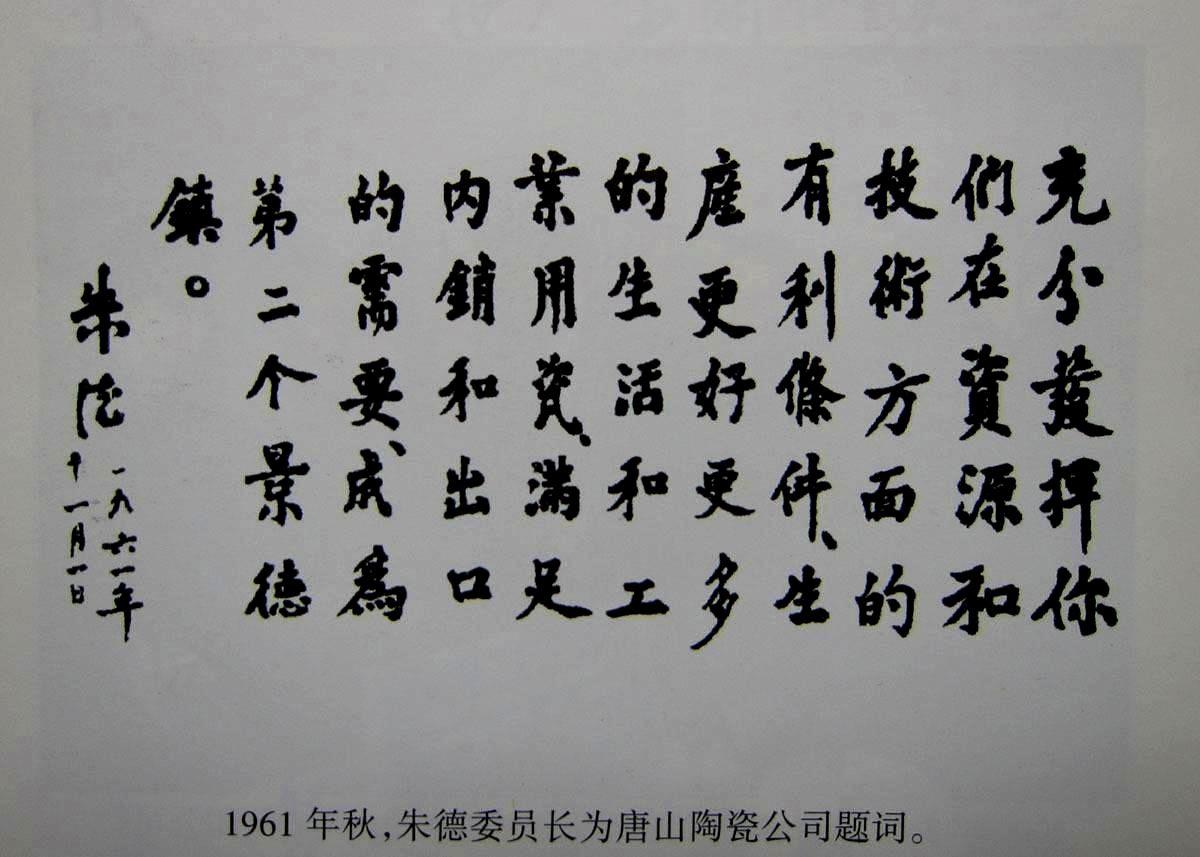 充分發揮你
們在資源和
技術方面的
有利條件、生
產更好更多
的生活和工
業用瓷、滿足
内銷和出口
的需要、成爲
第二个景德
鎮。
朱德
一九六一年
十一月一日
1961年秋,朱德委员长为唐山陶瓷公司题词。